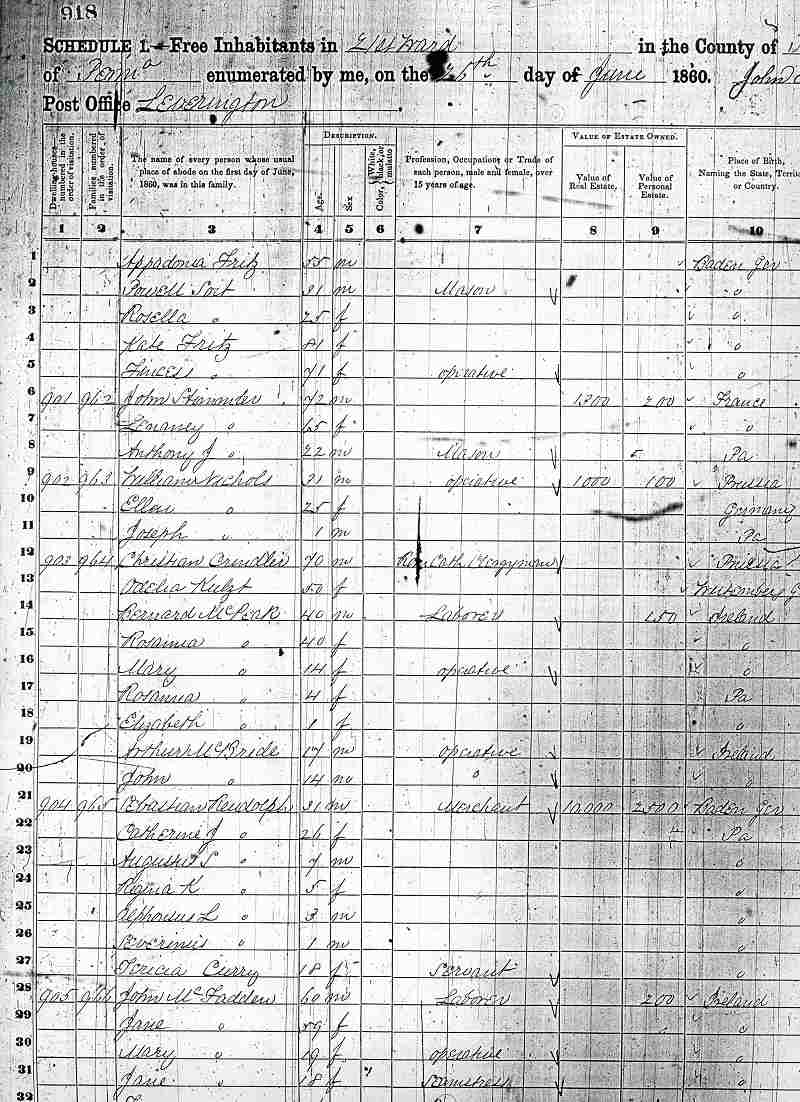 918
SCHEDULE 1.—Free Inhabitants in 21st Ward in the County of
of Penna enumerated by me, on the 26th day of June 1860. John
Post Office Leverington
Dwelling-houses numbered in the order of visitation.
Families numbered in the order of visitation.
The name of every person whose usual place of abode on the first day of June, 1860, was in this family.
DESCRIPTION.
Age.
Sex
Color, White, black, or mulatto
Profession, Occupation, or Trade of each person, male and female, over 15 years of age.
VALUE OF ESTATE OWNED.
Value of Real Estate.
Value of Personal Estate.
Place of Birth, Naming the State, Territ or Country.
1 2 3 4 5 6 7 8 9 10
1 Appadonia Fritz 55 m Baden Ger
2 Powell Soit 31 m Mason "
3 Rosella " 25 f "
4 Kate Fritz 81 f "
5 " 71 f operative "
6 901 962 John 72 m 1200 200 France
7 " 65 f "
8 Anthony J " 22 m Mason Pa
9 902 963 William Nichols 31 m operative 1000 100 Prussia
10 Ellen " 25 f Germany
11 Joseph " 1 m Pa
12 903 964 Christian 70 m Rom Cath Clergyman Prussia
13 Odelia Kulzt 50 f Wurtemberg G
14 Bernard McPeak 40 m Laborer 150 Ireland
15 Rosanna " 40 f "
16 Mary " 14 f operative "
17 Rosanna " 4 f Pa
18 Elizabeth " 1 f "
19 Arthur McBride 17 m operative Ireland
20 John " 14 m " "
21 904 965 Ebastian Rudolph 31 m Merchant 10,000 2500 Baden Ger
22 Catherine J " 26 f Pa
23 Augustus S " 7 m "
24 Regina K " 5 f "
25 Alphonsus L " 3 m "
26 Severinus " 1 m "
27 Tericia Curry 18 f Servant "
28 905 966 John McFadden 60 m Laborer 200 Ireland
29 Jane " 59 f "
30 Mary " 19 f operative "
31 Jane " 18 f Seamstress "
32